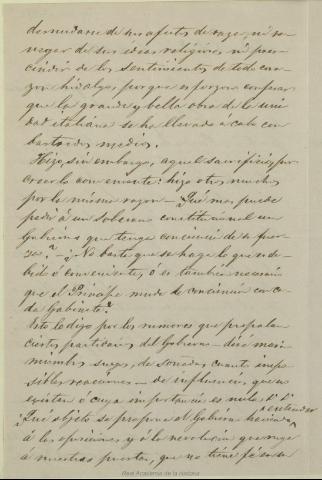 desnudarse de sus afectos de raza, ni re-
negar de sus ideas religiosas, ni pres-
cindir de los sentimientos de todo cora-
zon hidalgo, porque es forzoso confesar
que la grande y bella obra de la uni-
dad italiana se ha llevado á cabo con
bastardos medios.
Hizo, sin embargo, aquel sacrificio, por
creerlo conveniente: hizo otros muchos
por la misma razon. ¿Qué mas puede
pedir á un Soberano constitucional un
Gobierno que tenga conciencia de su fuer-
za? ¿No basta que se haga lo que es de-
bido ó conveniente, ó es tambien necesario
que el Príncipe mude de conciencia con ca-
da Gabinete?
Esto lo digo por los rumores que propalan
ciertos partidarios del Gobierno — diré mas:
miembros suyos, de soñadas cuanto impo-
sibles reacciones — de influencias, que no
existen ó cuya importancia es nula.
¿Qué objeto se propone el Gobierno haciendo entender
á las oposiciones y á la revolucion que ruge
á nuestras puertas, que no tiene fé en su
Real Academia de la Historia